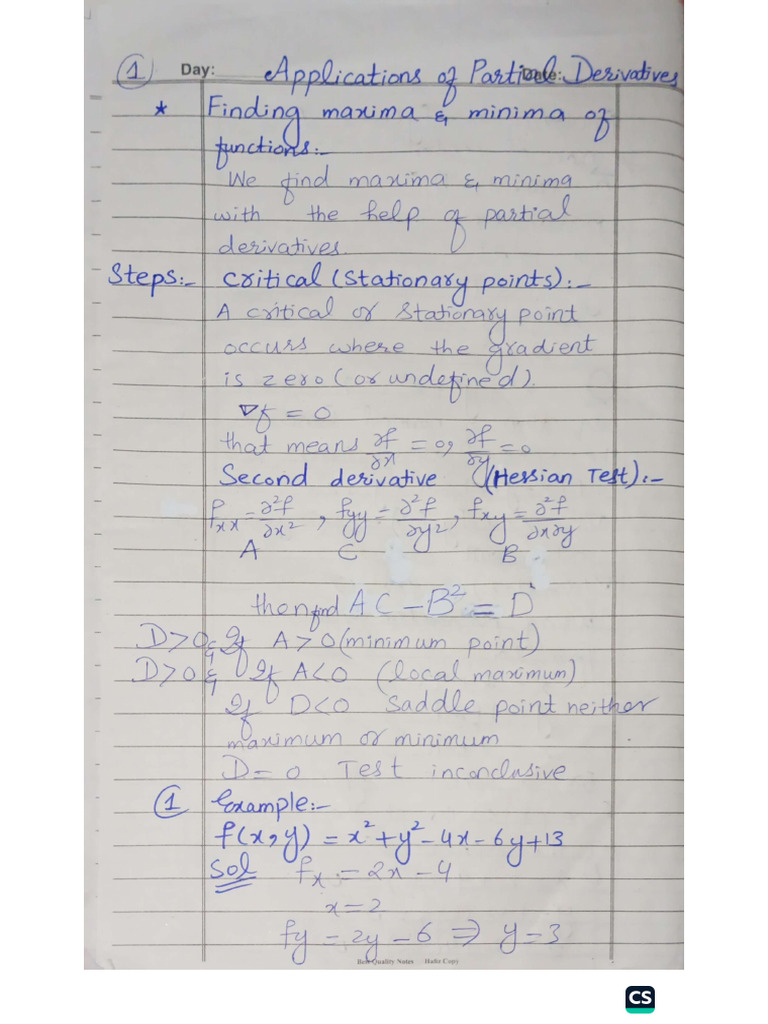 ① Day: Applications of Partial Date: Derivatives
* Finding maxima & minima of
functions:-
We find maxima & minima
with the help of partial
derivatives.
Steps:- Critical (Stationary points):-
A critical or stationary point
occurs where the gradient
is zero (or undefined).
∇f = 0
that means ∂f/∂x = 0, ∂f/∂y = 0
Second derivative (Hessian Test):-
fxx = ∂²f/∂x², fyy = ∂²f/∂y², fxy = ∂²f/∂x∂y
A C B
then find AC - B² = D
D>0 & If A>0 (minimum point)
D>0 & If A<0 (local maximum)
If D<0 Saddle point neither
maximum or minimum
D = 0 Test inconclusive
① Example:-
f(x,y) = x² + y² - 4x - 6y + 13
Sol fx = 2x - 4
x = 2
fy = 2y - 6 ⇒ y = 3
Best Quality Notes Hafiz Copy
CS